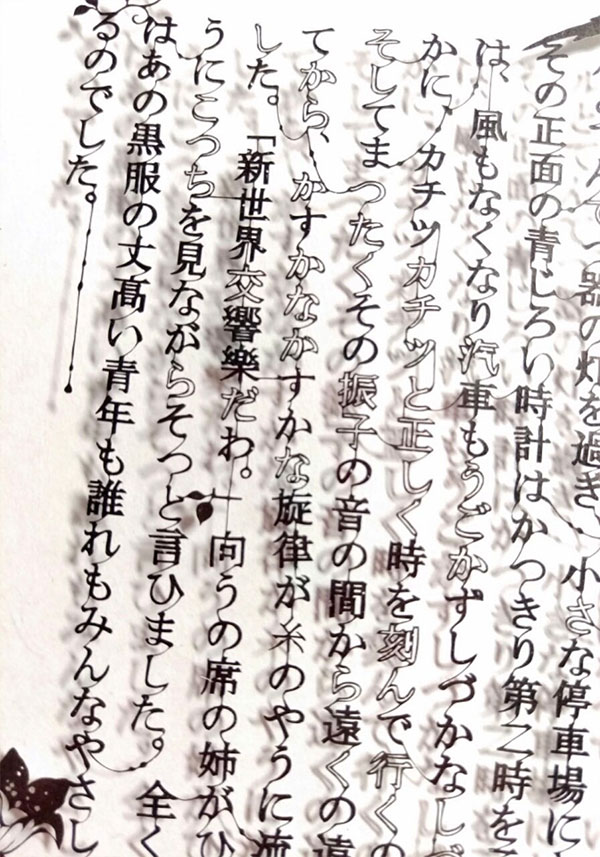 んてつ器の灯を過ぎ、小さな停車場に
その正面の青じろい時計はかつきり第二時を
は、風もなくなり汽車もうごかずしづかなしづ
かに、カチツカチツと正しく時を刻んで行くの
そしてまつたくその振子の音の間から遠くの遠
てから、かすかなかすかな旋律が糸のやうに流
した。「新世界交響樂だわ。」向うの席の姉がひ
うにこつちを見ながらそつと言ひました。全く
はあの黒服の丈髙い青年も誰れもみんなやさし
るのでした。